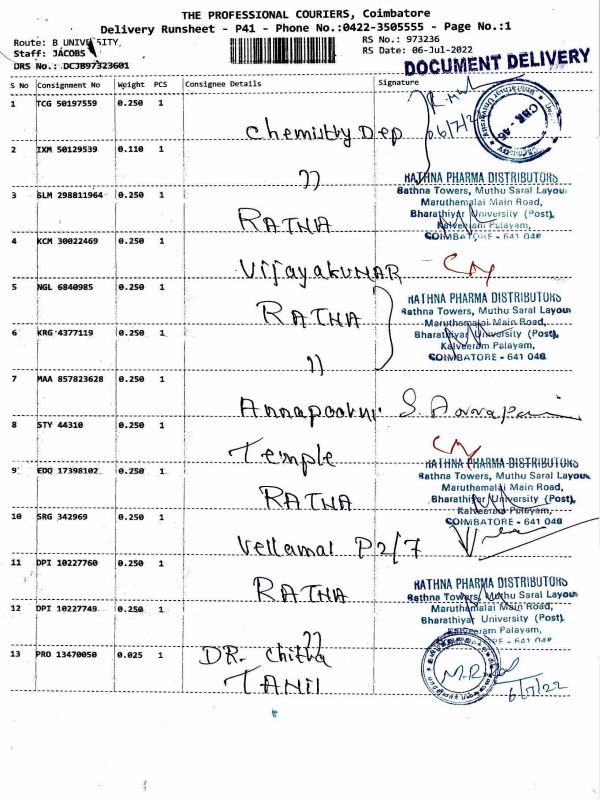 THE PROFESSIONAL COURIERS, Coimbatore
Delivery Runsheet - P41 - Phone No.:0422-3505555 - Page No.:1
Route: B UNIVERSITY,
Staff: JACOBS
DRS No.: DCJB97323601
RS No.: 973236
RS Date: 06-Jul-2022
DOCUMENT DELIVERY
S No Consignment No Weight PCS Consignee Details Signature
1 TCG 50197559 0.250 1
Chemistry Dep 06/7/22
CBR. 46
2 IXM 50129539 0.110 1
”
3 SLM 298811964 0.250 1
RATNA
RATHNA PHARMA DISTRIBUTORS
Rathna Towers, Muthu Saral Layout
Maruthamalai Main Road,
Bharathiyar University (Post),
Kalveeram Palayam,
COIMBATORE - 641 046
4 KCM 30022469 0.250 1
Vijayakumar
5 NGL 6840985 0.250 1
RATNA
RATHNA PHARMA DISTRIBUTORS
Rathna Towers, Muthu Saral Layout
Maruthamalai Main Road,
Bharathiyar University (Post),
Kalveeram Palayam,
COIMBATORE - 641 046
6 KRG 4377119 0.250 1
”
7 MAA 857823628 0.250 1
Annapoorni
8 STY 44310 0.250 1
Temple
9 EDQ 17398102 0.250 1
RATNA
RATHNA PHARMA DISTRIBUTORS
Rathna Towers, Muthu Saral Layout
Maruthamalai Main Road,
Bharathiyar University (Post),
Kalveeram Palayam,
COIMBATORE - 641 046
10 SRG 342969 0.250 1
Vellamal P2/7
11 DPI 10227760 0.250 1
RATNA
RATHNA PHARMA DISTRIBUTORS
Rathna Towers, Muthu Saral Layout
Maruthamalai Main Road,
Bharathiyar University (Post),
Kalveeram Palayam,
12 DPI 10227749 0.250 1
”
13 PRO 13470050 0.025 1
DR. Chitra
TAMIL
6/7/22